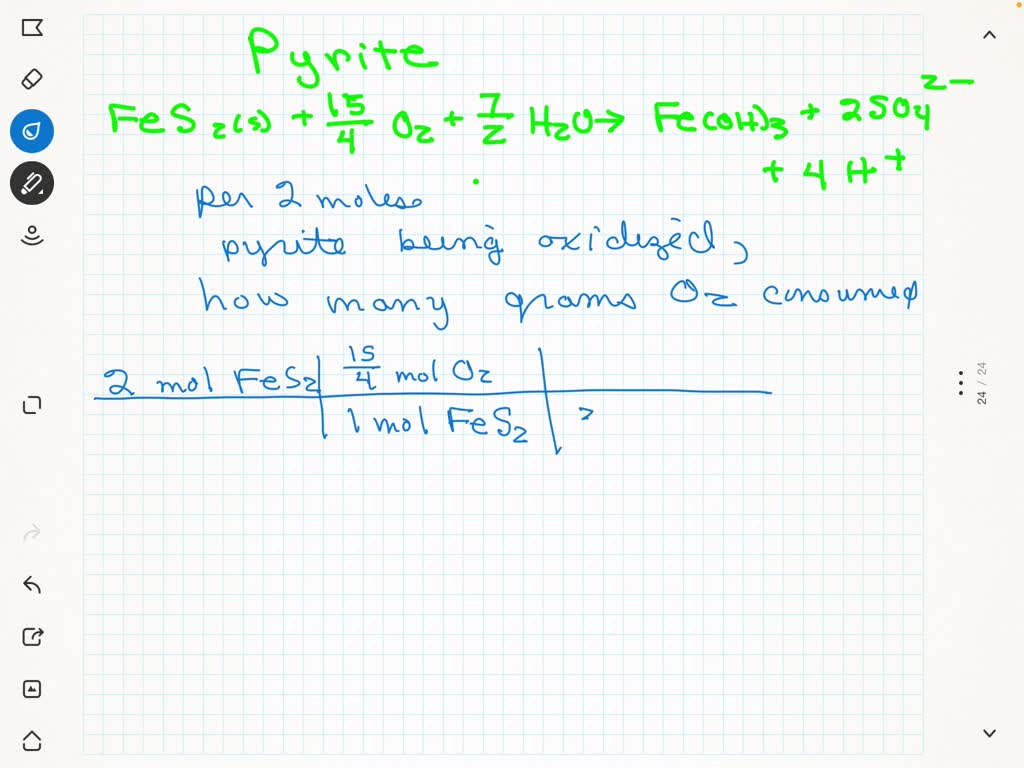 Pyrite
FeS₂(s) + 15/4 O₂ + 7/2 H₂O → Fe(OH)₃ + 2SO₄²⁻
+ 4H⁺
per 2 moles
pyrite being oxidized,
how many grams O₂ consumed
2 mol FeS₂ | 15/4 mol O₂ |
| 1 mol FeS₂ |
24 / 24